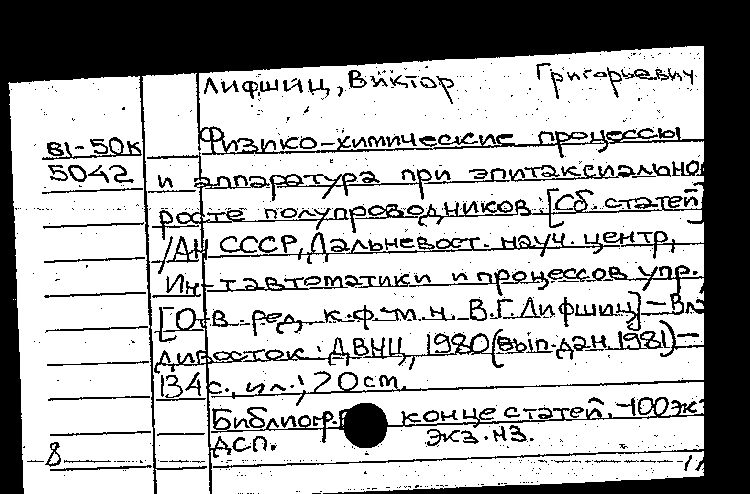 Лифшиц, Виктор Григорьевич
В1-50к Физико-химические процессы
5042 и аппаратура при эпитаксиально
росте полупроводников: [Сб. статей]
/АН СССР, Дальневост. науч. центр,
Ин-т автоматики и процессов упр.,
[Отв. ред. к.ф.-м.н. В.Г. Лифшиц] - Вла
дивосток: ДВНЦ, 1980 (вып. дан. 1981) -
134 с., ил.; 20 см.
Библиогр. конце статей. - 100 экз
ДСП. экз. нз.
8